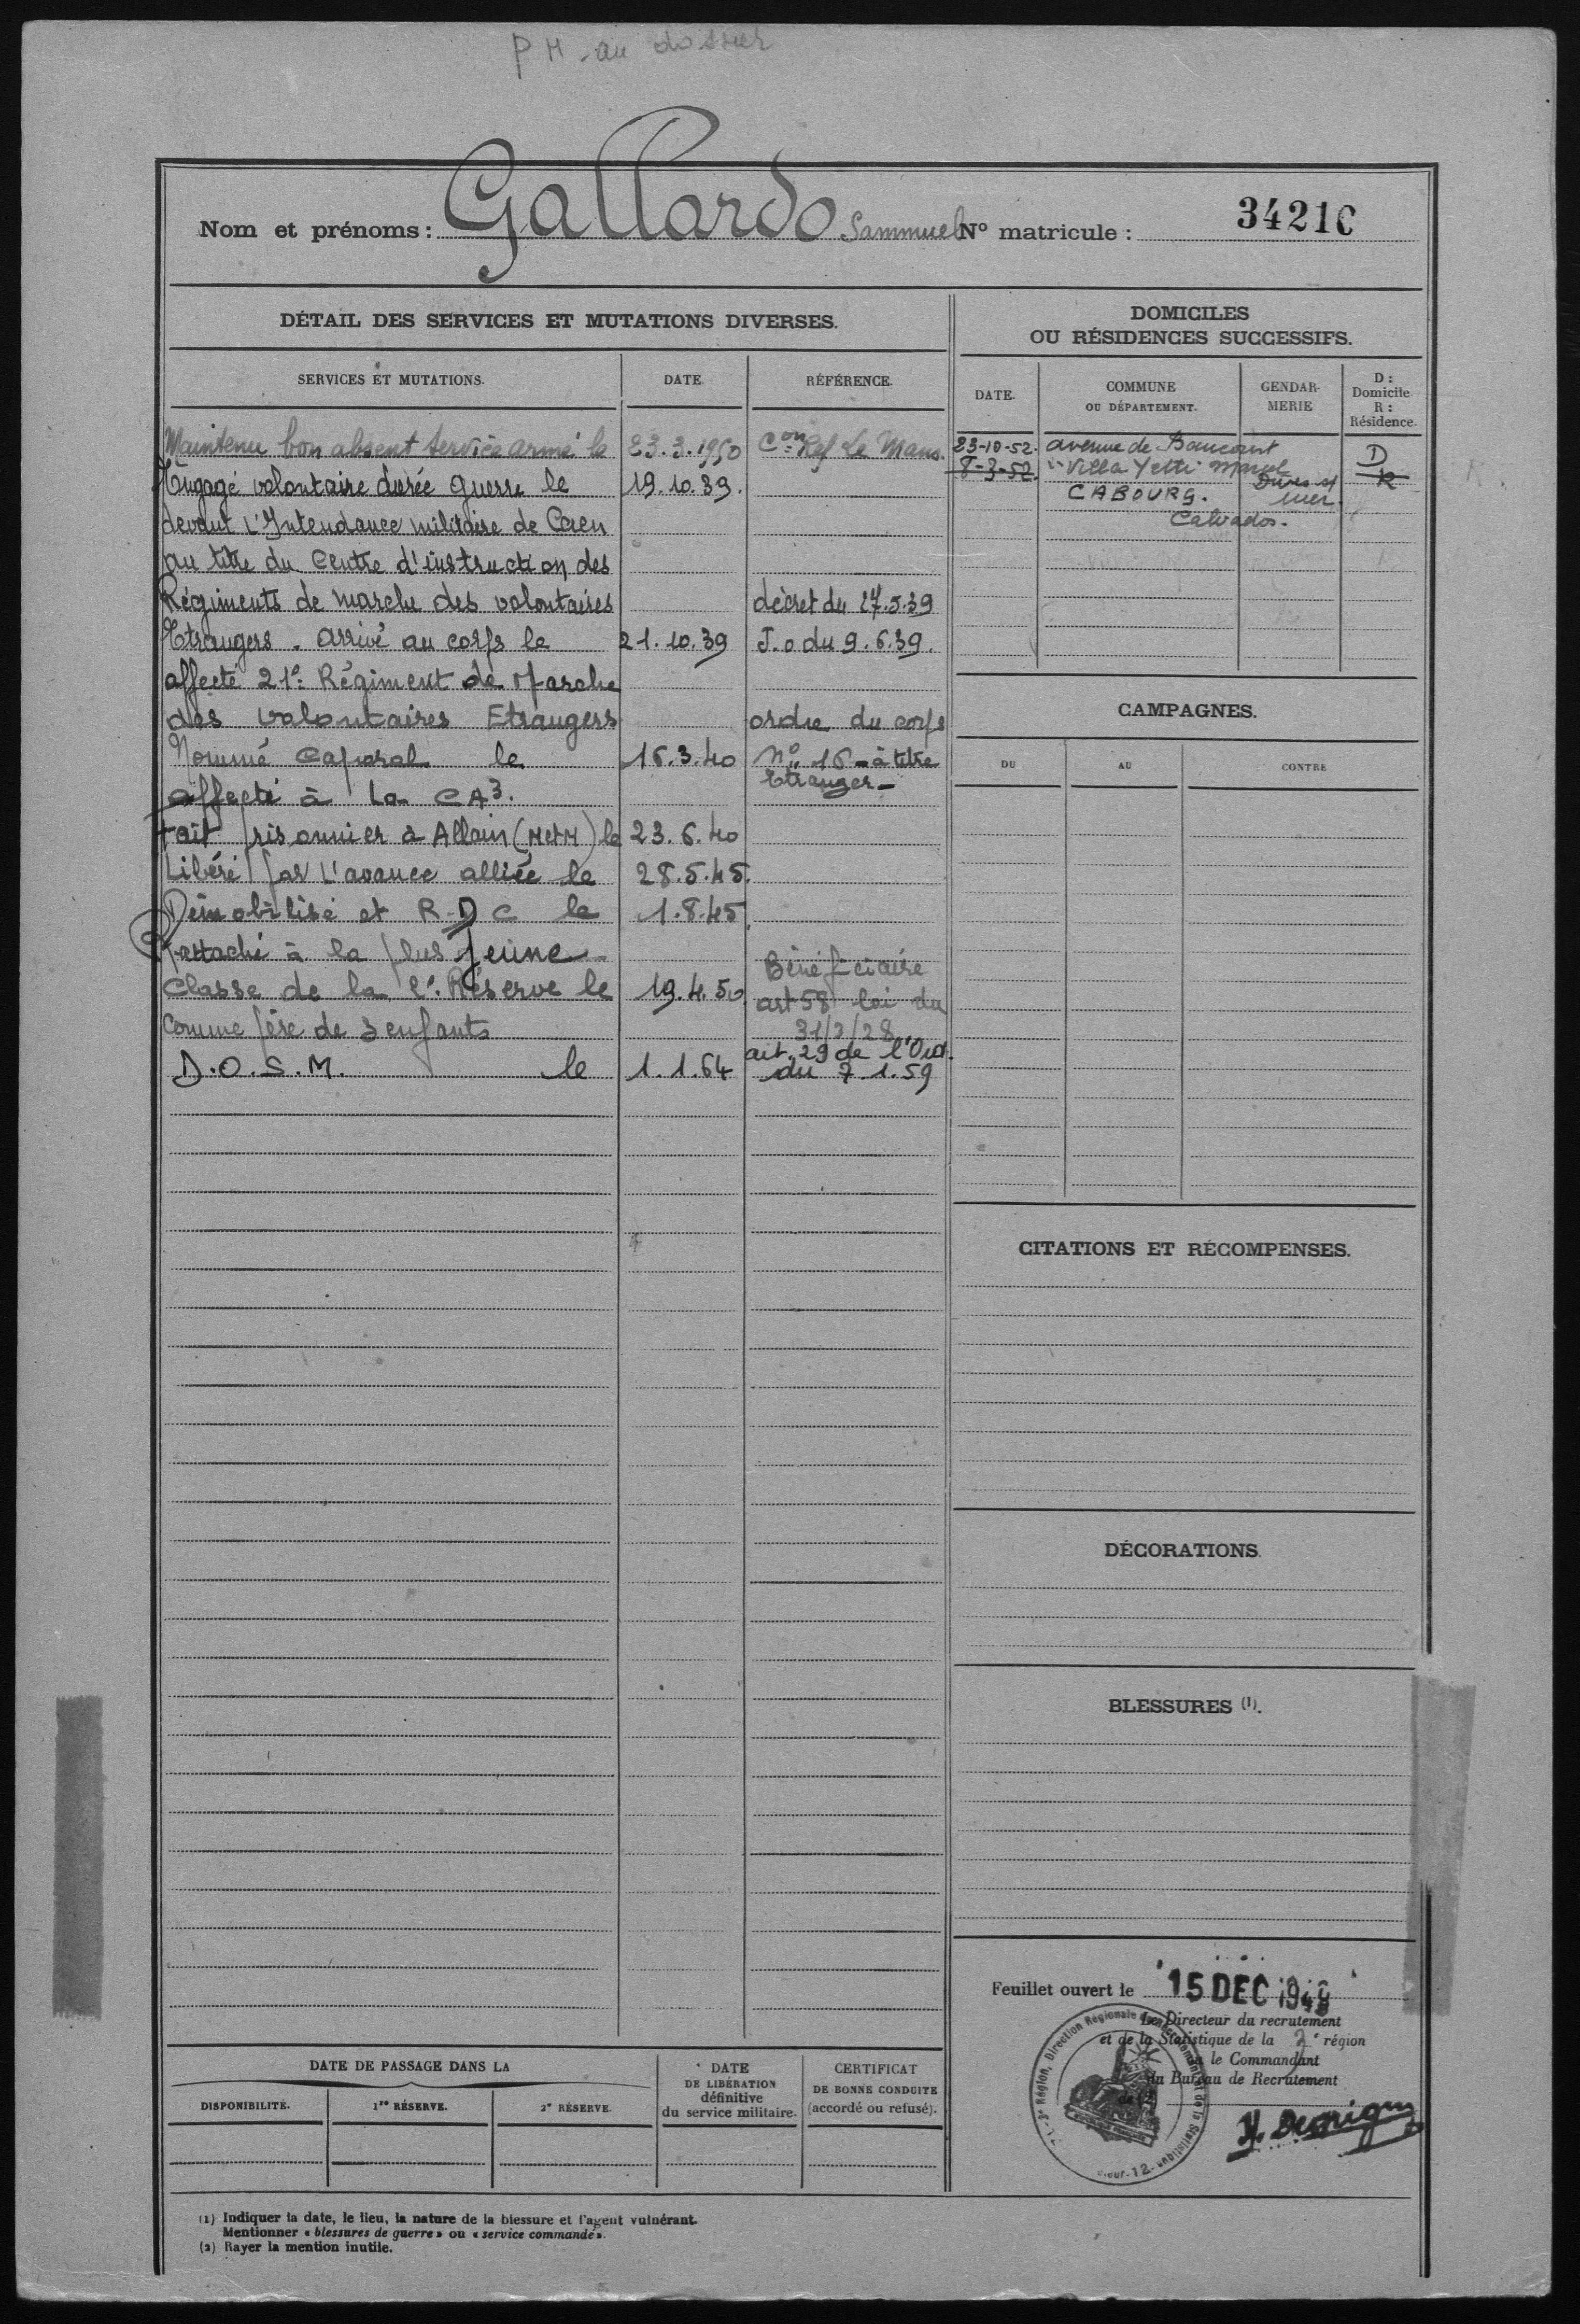 P M au dossier
Nom et prénoms : Gallardo Sammuel N° matricule : 3421C
DÉTAIL DES SERVICES ET MUTATIONS DIVERSES.
SERVICES ET MUTATIONS. DATE. RÉFÉRENCE.
Maintenu bon absent service armé le 23.3.1950 Con Ref Le Mans.
Engagé volontaire durée guerre le 19.10.39.
devant l'Intendance militaire de Caen
au titre du Centre d'instruction des
Régiments de marche des volontaires décret du 27.5.39
Etrangers. arrivé au corps le 21.10.39 J.o du 9.6.39.
affecté 21e Régiment de Marche
des volontaires Etrangers ordre du corps
Nommé Caporal le 16.3.40 N° 16 à titre
Etranger-
affecté à la CA3.
Fait prisonnier à Allain (MetM) le 23.6.40
Libéré par L'avance alliée le 28.5.45.
Démobilisé et R.D C le 1.8.45
rattaché à la plus jeune
Bénéficiaire
Classe de la 2e Réserve le 19.4.50 art 58 loi du
comme père de 3 enfants 31/3/28
art. 29 de l'Ord.
D.O.S.M. le 1.1.64 du 7 1.59
DOMICILES
OU RÉSIDENCES SUCCESSIFS.
DATE. COMMUNE OU DÉPARTEMENT. GENDARMERIE D : Domicile R : Résidence.
23-10-52. avenue de D
8-3-52. Villa Dives s/ R
CABOURG. mer.
Calvados.
CAMPAGNES.
DU AU CONTRE
CITATIONS ET RÉCOMPENSES.
DÉCORATIONS.
BLESSURES (1).
Feuillet ouvert le 15 DEC 1949
Le Directeur du recrutement
et de la Statistique de la 3e région
le Commandant
du Bureau de Recrutement
de
DATE DE PASSAGE DANS LA
DISPONIBILITÉ. 1re RÉSERVE. 2e RÉSERVE.
DATE
DE LIBÉRATION
définitive
du service militaire.
CERTIFICAT
DE BONNE CONDUITE
(accordé ou refusé).
(1) Indiquer la date, le lieu, la nature de la blessure et l'agent vulnérant.
Mentionner « blessures de guerre » ou « service commandé ».
(2) Rayer la mention inutile.